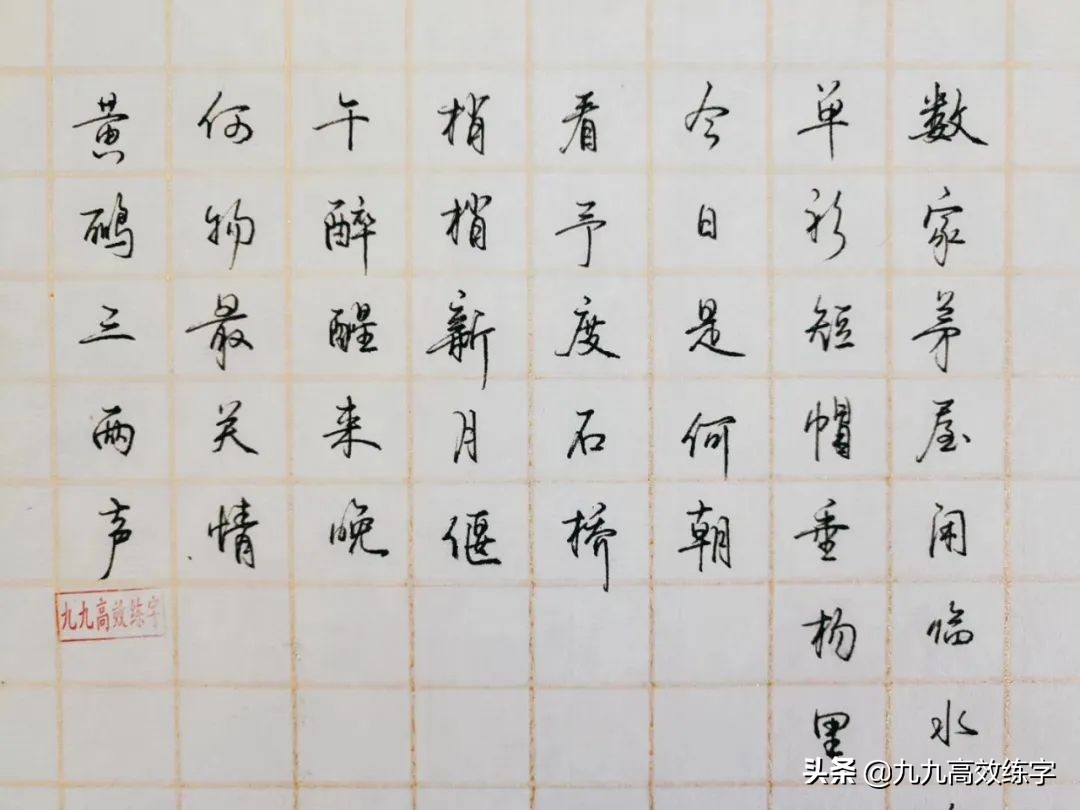 数家茅屋闲临水
单衫短帽垂杨里
今日是何朝
看予度石桥
梢梢新月偃
午醉醒来晚
何物最关情
黄鹂三两声
九九高效练字
头条 @九九高效练字